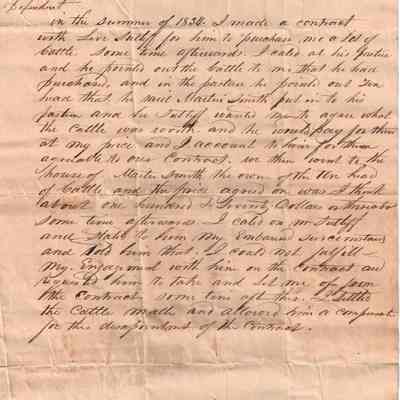 Defendent
in the summer of 1834 I made a contract
with Levi Sutliff for him to purchase me a lot of
Cattle. Some time afterwards. I caled at his pasture
and he pointed out the Cattle to me that he had
purchased, and in the pasture he pointed out Ten
head that he said Martin Smith put in to his
pasture and Sutliff wanted me to agree what
the Cattle was worth. and he would pay for them
at my price and I account to him for them
agreeable to our Contract. we then went to the
house of Martin Smith the owner of the ten head
of Cattle and the price agreed on was I think
about one hundred & Twenty Dollars or thereabout
some time afterwards. I caled on Mr Sutliff
and Stated to him my Embarised surcumstances
and told him that. I could not fulfill
my Engagement with him on the Contract and
requested him to take and let me of from
the Contract some time aft this. I settled
the Cattle matter and allowed him a compensate
for this disapointment of the Contract.